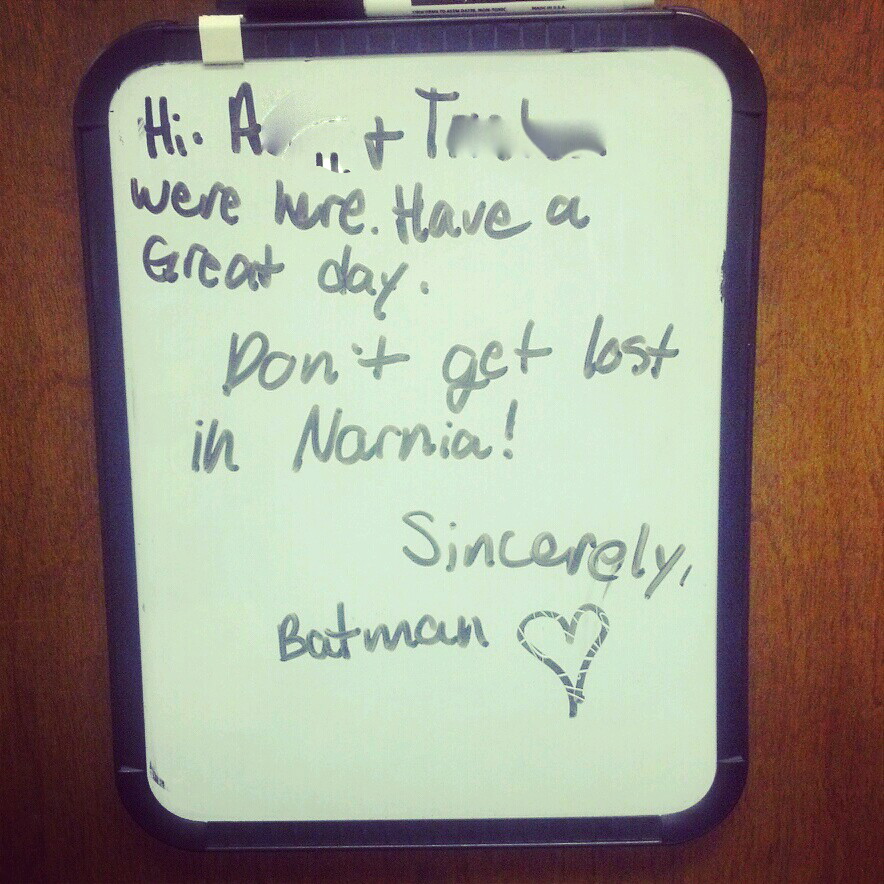 MADE IN U.S.A.
Hi. +
were here. Have a
Great day.
Don't get lost
in Narnia!
Sincerely,
Batman